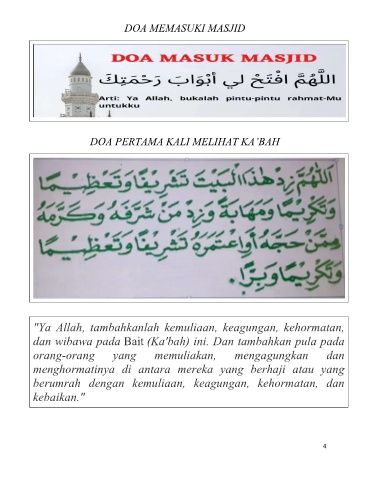 DOA MEMASUKI MASJID
DOA MASUK MASJID
اللَّهُمَّ افْتَحْ لِي أَبْوَابَ رَحْمَتِكَ
Arti: Ya Allah, bukalah pintu-pintu rahmat-Mu
untukku
DOA PERTAMA KALI MELIHAT KA'BAH
اَللّٰهُمَّ زِدْ هٰذَاالْبَيْتَ تَشْرِيْفًا وَتَعْظِيْمًا
وَتَكْرِيْمًا وَمَهَابَةً وَزِدْ مَنْ شَرَّفَهُ وَكَرَّمَهُ
مِمَّنْ حَجَّهُ أَوِاعْتَمَرَهُ تَشْرِيْفًا وَتَعْظِيْمًا
وَتَكْرِيْمًا وَبِرًّا.
"Ya Allah, tambahkanlah kemuliaan, keagungan, kehormatan,
dan wibawa pada Bait (Ka'bah) ini. Dan tambahkan pula pada
orang-orang yang memuliakan, mengagungkan dan
menghormatinya di antara mereka yang berhaji atau yang
berumrah dengan kemuliaan, keagungan, kehormatan, dan
kebaikan."
4